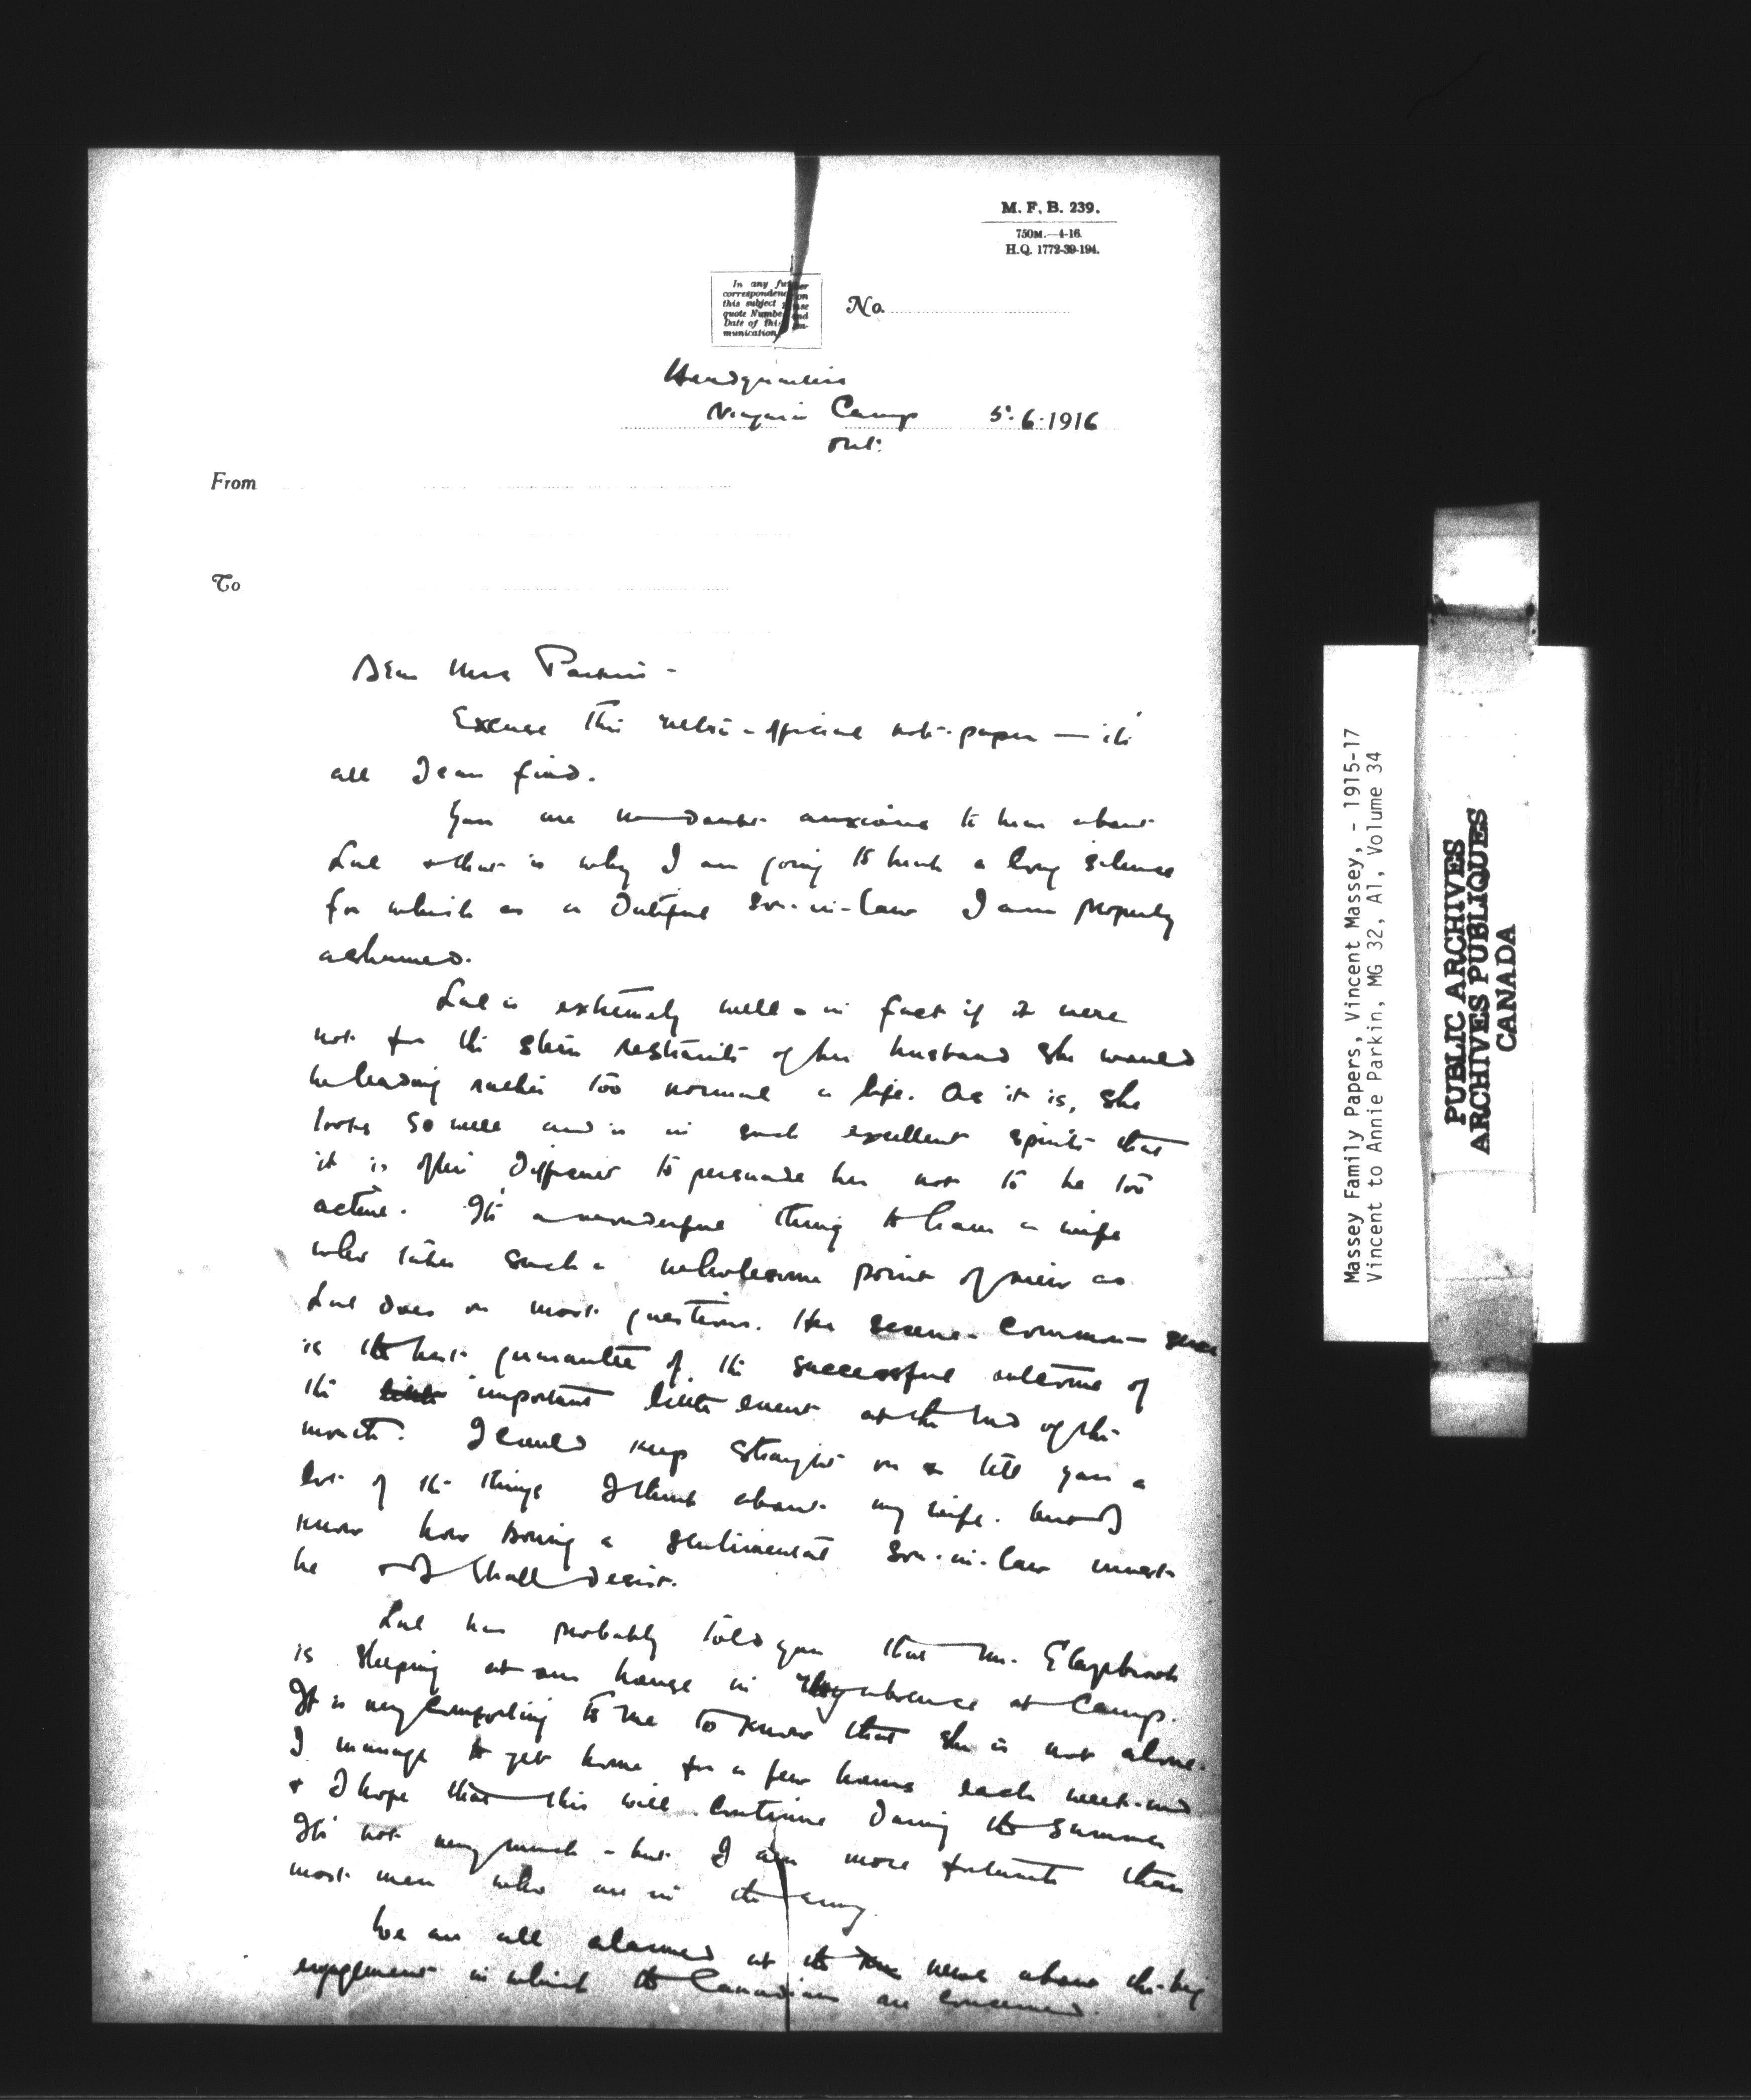 M. F. B. 239.
750M.—4-16.
H.Q. 1772-39-194.
In any further
correspondence on
this subject please
quote Number and
Date of this com-
munication.
No.
Headquarters
Niagara Camp 5.6.1916
Ont.
From
To
Dear Mrs Parkin -
Excuse this official note-paper — it's
all I can find.
You are no doubt anxious to hear about
Lal & that is why I am going to break a long silence
for which as a dutiful son-in-law I am properly
ashamed.
Lal is extremely well - in fact if it were
not for the stern restraints of her husband she would
be leading rather too normal a life. As it is, she
looks so well and is in such excellent spirits that
it is often difficult to persuade her not to be too
active. It's a wonderful thing to have a wife
who takes such a wholesome point of view as
Lal does on most questions. Her serene common-sense
is the best guarantee of the successful outcome of
the little important little event at the end of the
month. I could keep straight on & tell you a
lot of the things I think about my wife. But I
know how boring a sentimental son-in-law must
be & I shall desist.
Lal has probably told you that Mr. Glazebrook
is sleeping at our house in my absence at Camp.
It is very comforting to me to know that she is not alone.
I manage to get home for a few hours each week-end
& I hope that this will continue during the summer
It's not very much - but I am more fortunate than
most men who are in the army.
We are all alarmed at the news about the big
engagement in which the Canadians are concerned.
Massey Family Papers, Vincent Massey, - 1915-17
Vincent to Annie Parkin, MG 32, A1, Volume 34
PUBLIC ARCHIVES
ARCHIVES PUBLIQUES
CANADA